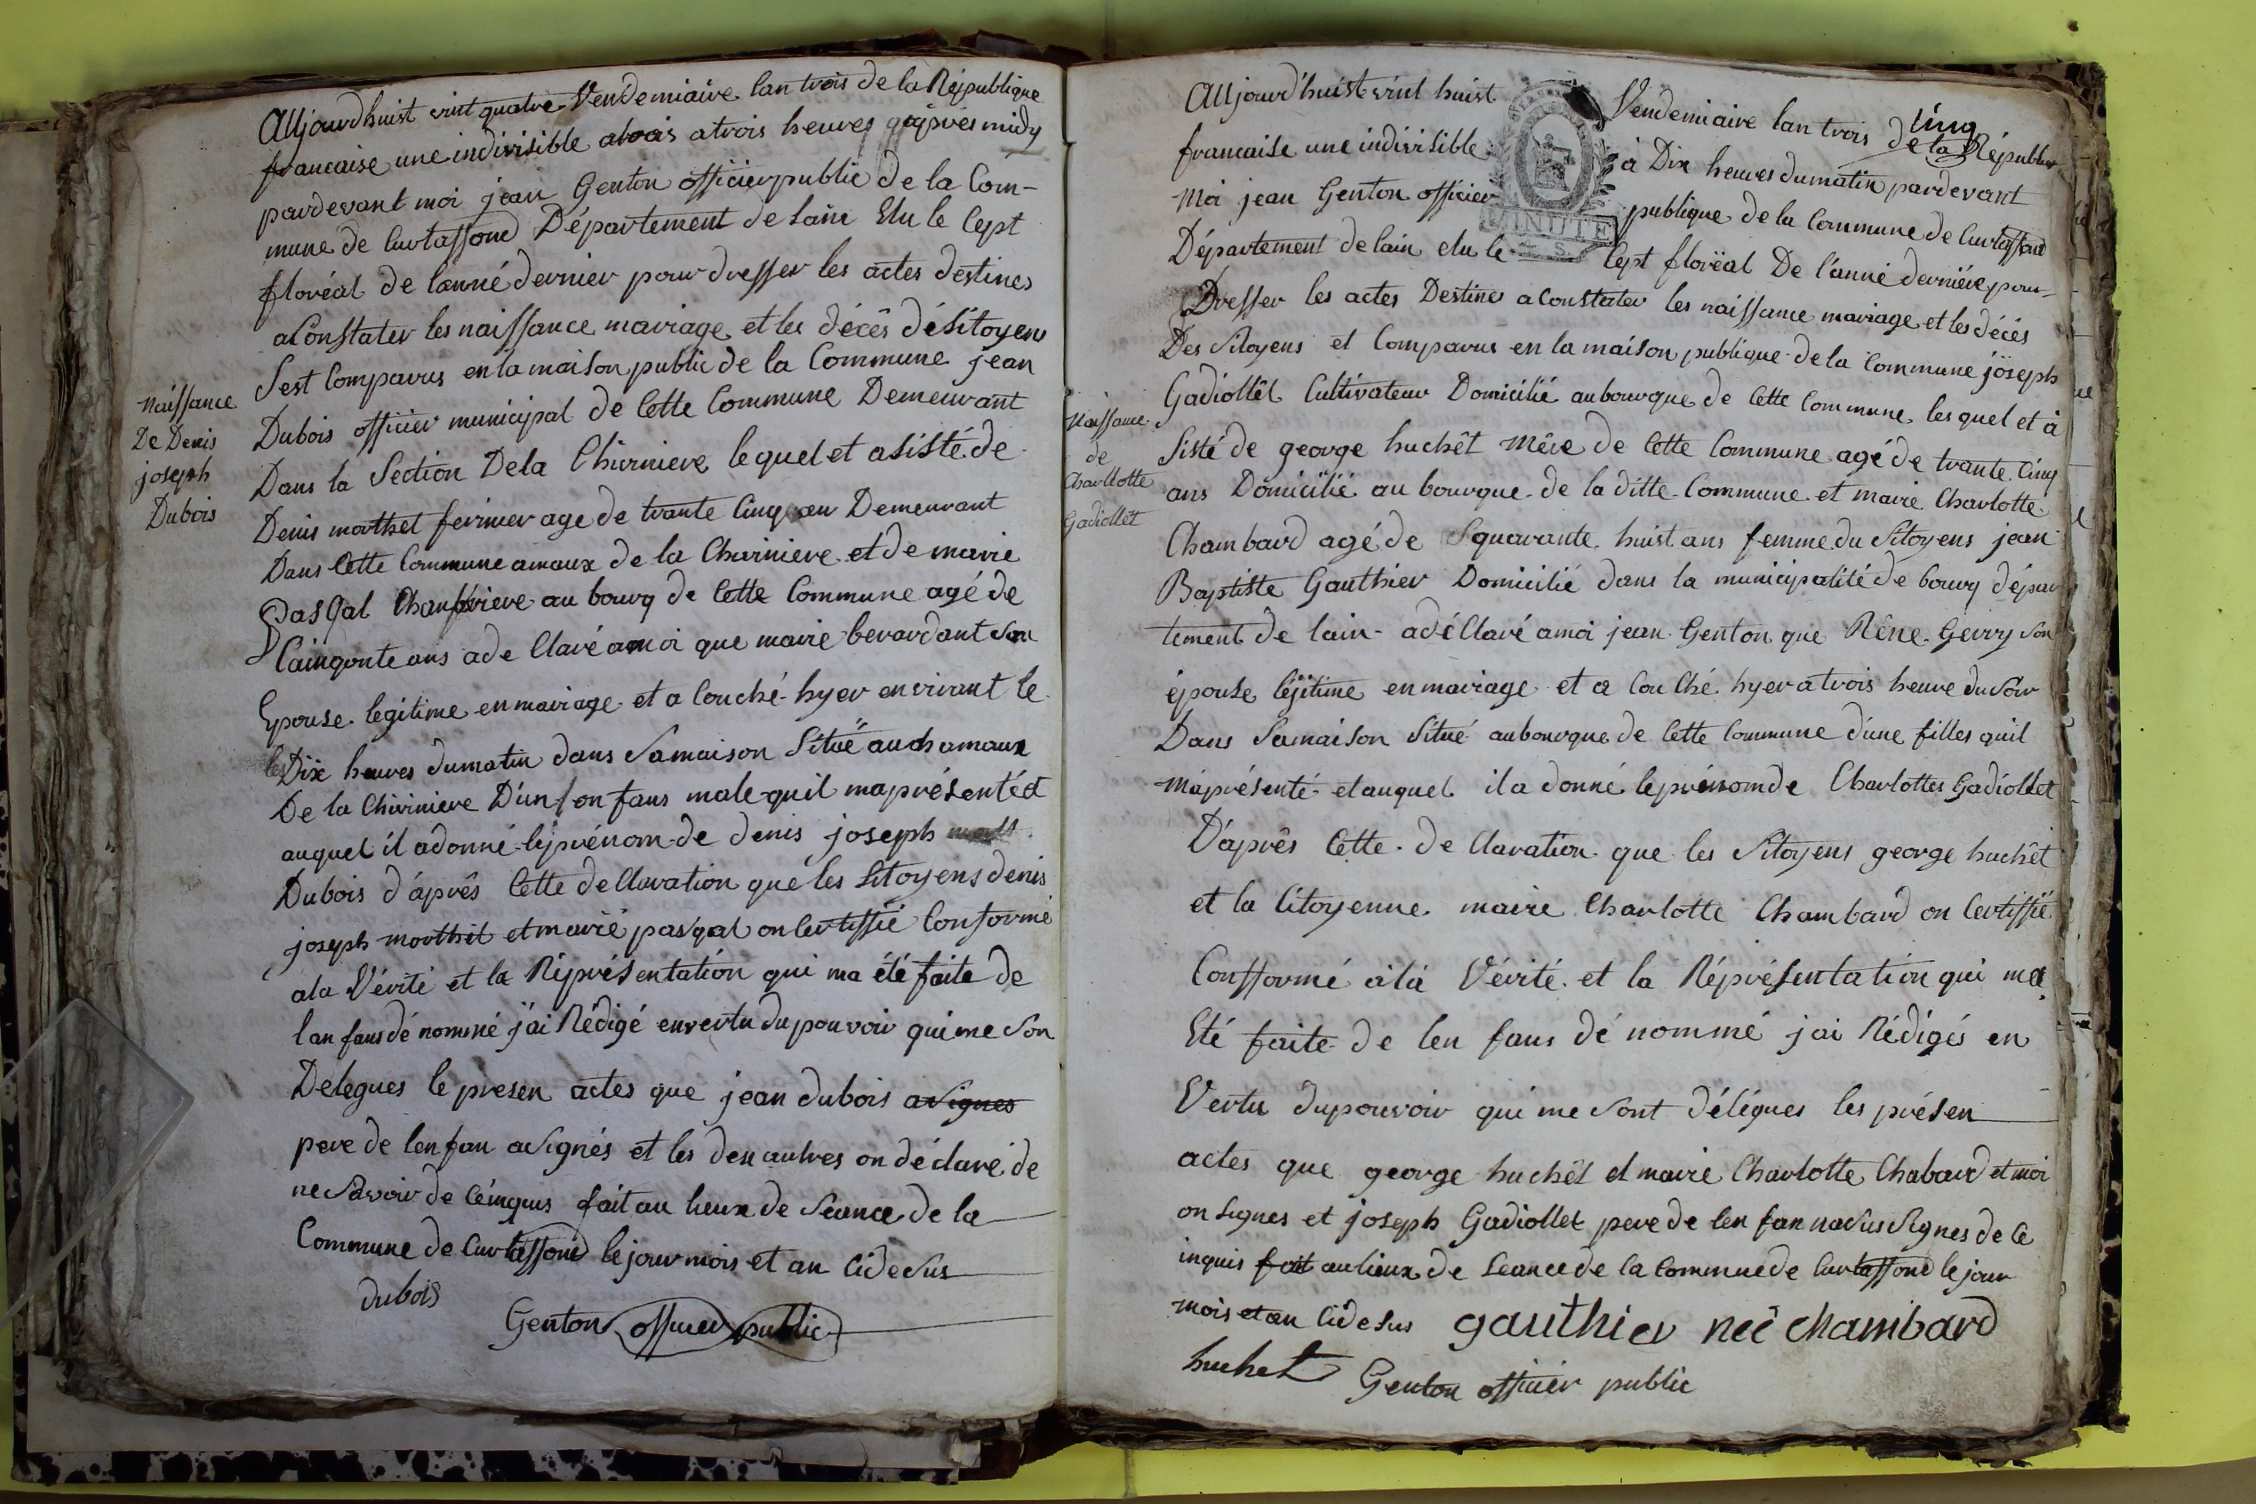 Aujourdhuist vint quatre Vendemiaire lan trois de la République
francaise une indivisible a trois heures apprès midy
pardevant moi jean Genton officier public de la Com-
mune de Curtaffond Département de Lain Elu le Cept
floréal de lanné dernier pour dresser les actes destines
a Constater les naissance mariage et les décês dé Sitoyens
Sest Comparus en la maison public de la Commune jean
Dubois officier municipal de Cette Commune Demeurant
Dans la Section De la Chirniere lequel et asisté de
Denis morthet fermier age de trante Cinq an Demeurant
Dans Cette Commune amaux de la Charniere et de marie
Pasqal au bourg de Cette Commune agé de
Cainqonte ans a de Claré a moi que marie berardant Son
Epouse legitime en mariage et a Couché hyer en vivant le
les Dix heures dumatin dans Samaison Situë au chamaux
De la Chirniere D'un fonfans male quil maprésenté et
auquel il adonné léprénom de denis joseph
Dubois d'aprês Cette de Claration que les Sitoyens denis
joseph morthet et marië pasqal on Certiffié Conformé
ala Vérité et la Réprésentation qui ma été faite de
lanfans dé nommé j'ai Rédigé envertu dupouvoir quime Son
Delegues le presen actes que jean dubois a Signes
pere de lenfan a Signés et les deux autres on déclaré de
ne Savoir de Céinquis fait au lieux de Séance de la
Commune de Curtaffond le jour mois et an Cidesus
dubois
Genton officier public
naissance
De Denis
joseph
Dubois
Aujourd'huist vint huist Vendemiaire lan trois de la Républiq
francaise une indivisible à Dix heures dumatin pardevant
Moi jean Genton officier publique de la Commune de Curtaffond
Département de lain elu le Cept floréal De l'anné derniére pour
Dresser les actes Destines a Constater les naissance mariage et les décés
Des Sitoyens et Comparus en la maison publique de la Commune joseph
Gadiollêt Cultivateur Domicilié au bourque de Cette Commune les quel et à
Sisté de george huchêt mêre de Cette Commune agé de trante Cinq
ans Domicilié au bourque de la ditte Commune et marie Charlotte
Chambard agé de quarante huist ans femme du Sitoyens jean
Baptiste Gauthier Domicilié dans la municipalité de bourg dépar
tement de lain a dé Claré a moi jean Genton que Rêne Gerry Son
épouse léjitime en mariage et a Cou Ché hyer a trois heure du Soir
Dans Samaison Situé au bourque de Cette Commune d'une filles quil
m'apresenté et auquel il a donné leprénom de Charlottes Gadiollet
D'aprês Cette de Claration que les Sitoyens george huchêt
et la Citoyenne marie Charlotte Chambard on Certiffié
Confformé à la Vérité et la Réprésentation qui ma
Eté faite de len fans dé nommé j'ai Rédigés en
Vertu dupouvoir qui me Sont délégues les présen
actes que george huchêt et marie Charlotte Chabard et moi
on Signes et joseph Gadiollet pere de len fan na Sus Signes de Ce
inquis fait au lieux de Seance de la Commune de Curtaffond le jour
mois et an Cidesus gauthier neé chambard
huchet Genton officier public
Naissance
de
Charllotte
Gadiollêt
MINUTE